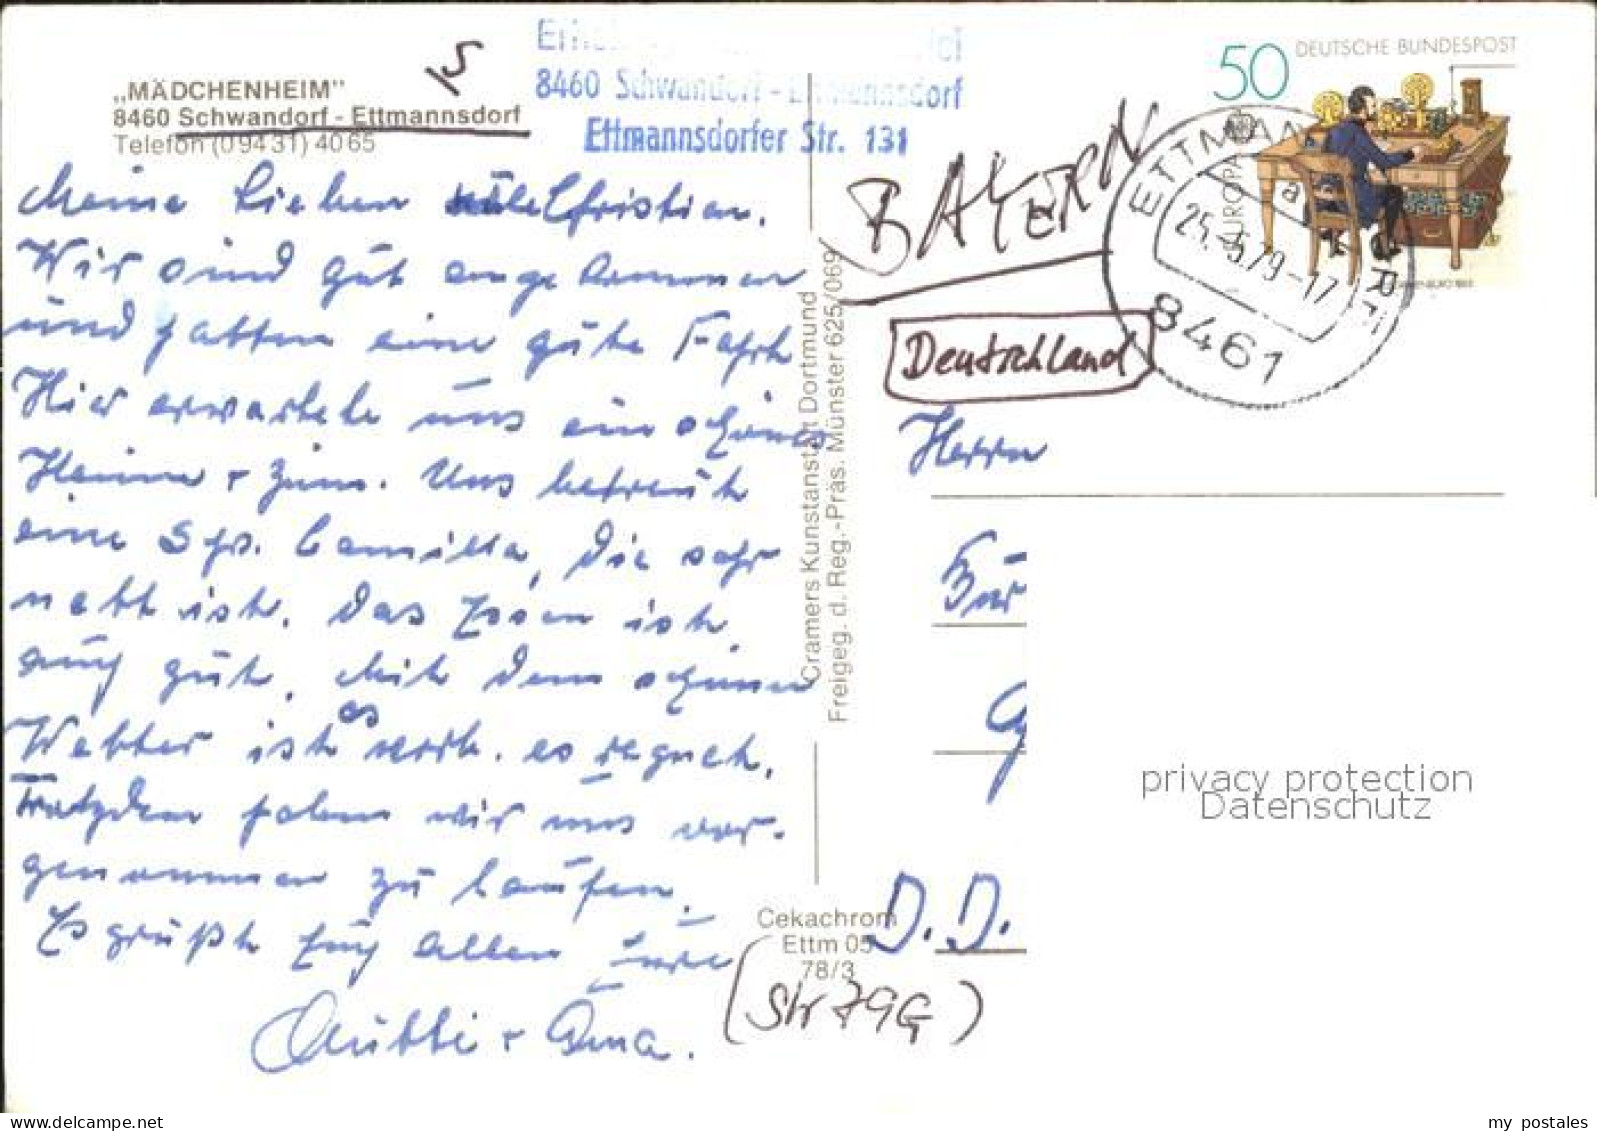 „MÄDCHENHEIM"
8460 Schwandorf - Ettmannsdorf
Telefon (09431) 4065
8460 Schwandorf - Ettmannsdorf
Ettmannsdorfer Str. 131
50 DEUTSCHE BUNDESPOST
EUROPA
ETTMANNSDORF
a
25.-5.79-17
8461
BAYERN
Deutschland
Meine Lieben Christian.
Wir sind gut angekommen
und hatten eine gute Fahrt
Hier erwartete uns ein schönes
Heim + Zim. Uns betreut
eine Schw. Camilla, die sehr
nett ist. Das Essen ist
auch gut. Mit dem schönen
Wetter ist es vorb. es regnet.
Trotzdem haben wir uns vor-
genommen zu laufen.
Es grüßt Euch allen Eure
Mutti + Oma.
Cramers Kunstanstalt Dortmund
Freigeg. d. Reg.-Präs. Münster 625/069
Cekachrom
Ettm 05
78/3
(Str 79G)
Herrn
D. D.
privacy protection
Datenschutz
my postales